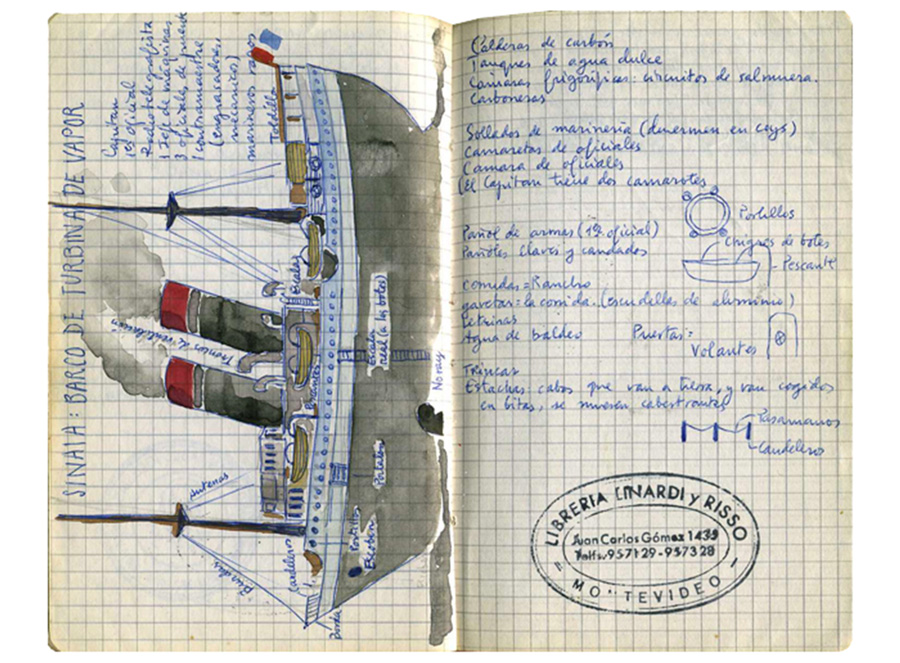 SINAIA: BARCO DE TURBINA DE VAPOR
Capitán
1er oficial
Radiotelegrafista
1 Jefe de máquinas
3 oficiales de puente
1 contramaestre
(engrasadores,
mecánicos)
marineros rasos
Toldilla
Escalas
Troncos de ventilación
Escala
real (a los botes)
Noray
Pescantes
Portalón
Antenas
Portillos
Escobén
Candeleros
Burdas
Borda
Calderas de carbón
Tanques de agua dulce
Cámaras frigoríficas: circuitos de salmuera.
Carboneras
Sollados de marinería (duermen en coys)
Camaretas de oficiales
Cámara de oficiales
(El Capitán tiene dos camarotes)
Portillos
Pañol de armas (1er oficial)
Chigres de botes
Pañoles claves y candados
Pescante
comidas = Rancho
gavetas: la comida. (escudillas de aluminio)
Letrinas
Agua de baldeo
Puertas:
Volantes
Trincar
Estachas: cabos que van a tierra, y van cogidos
en bitas, se mueven cabestrantes
Pasamanos
Candelero
LIBRERIA LINARDI y RISSO
Juan Carlos Gómez 1435
Telfs. 957129-957328
= MONTEVIDEO =